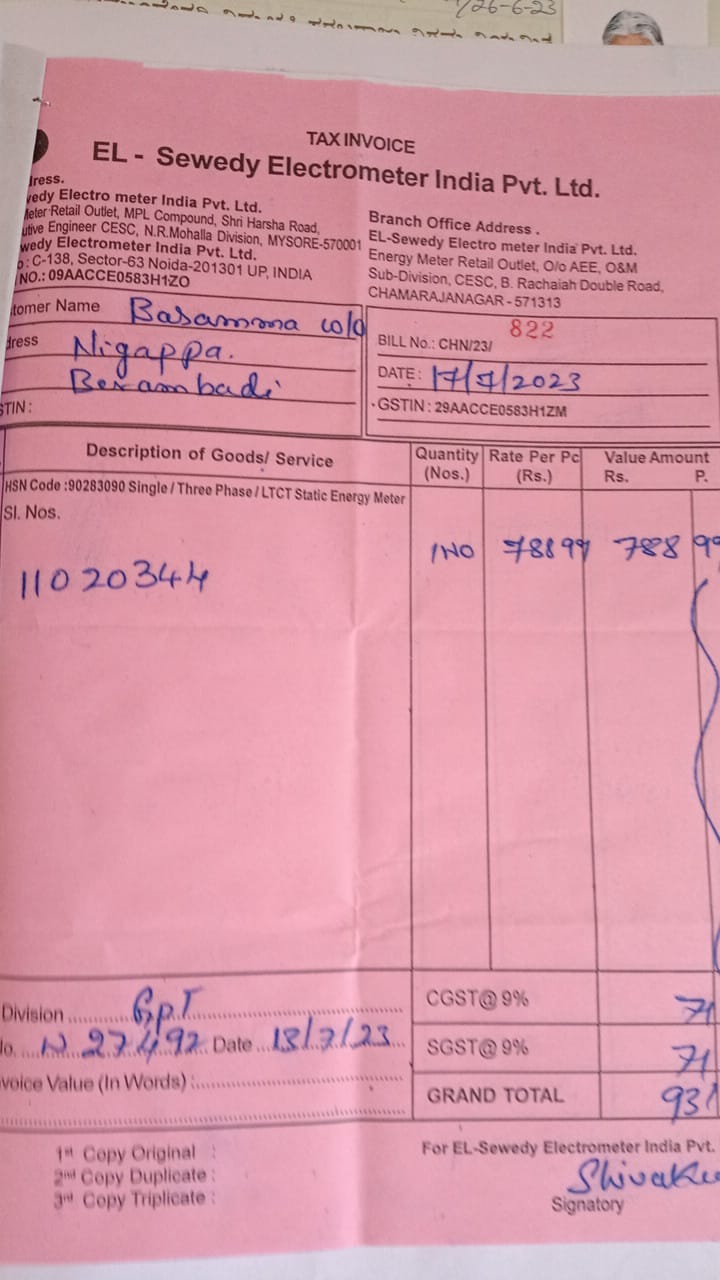 26-6-23
TAX INVOICE
EL - Sewedy Electrometer India Pvt. Ltd.
dress.
wedy Electro meter India Pvt. Ltd.
Meter Retail Outlet, MPL Compound, Shri Harsha Road,
utive Engineer CESC, N.R.Mohalla Division, MYSORE-570001
wedy Electrometer India Pvt. Ltd.
: C-138, Sector-63 Noida-201301 UP, INDIA
NO.: 09AACCE0583H1ZO
Branch Office Address .
EL-Sewedy Electro meter India Pvt. Ltd.
Energy Meter Retail Outlet, O/o AEE, O&M
Sub-Division, CESC, B. Rachaiah Double Road,
CHAMARAJANAGAR - 571313
tomer Name Basamma w/o
dress Nigappa.
Berambadi
STIN :
BILL No.: CHN/23/ 822
DATE : 17/7/2023
GSTIN : 29AACCE0583H1ZM
Description of Goods/ Service Quantity (Nos.) Rate Per Pc (Rs.) Value Amount Rs. P.
HSN Code :90283090 Single / Three Phase / LTCT Static Energy Meter
Sl. Nos.
11020344 1NO 788 99 788 99
Division GPT
lo. N 27492 Date 13/7/23
voice Value (In Words) :
CGST@ 9% 71
SGST@ 9% 71
GRAND TOTAL 931
1st Copy Original :
2nd Copy Duplicate :
3rd Copy Triplicate :
For EL-Sewedy Electrometer India Pvt.
Shivaku
Signatory